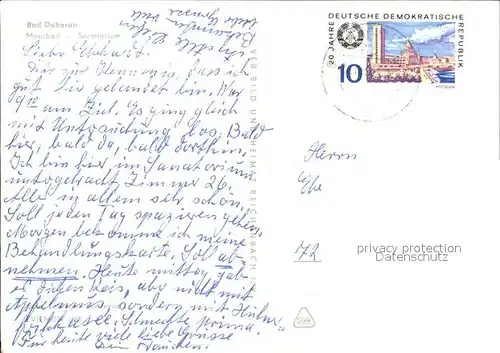 Bad Doberan
Moorbad - Sanatorium
Lieber Ekehart!
Dir zur Kenntnis, dass ich
gut hier gelandet bin. War
9 10 am Ziel. Es ging gleich
mit Untersuchung los. Bald
hier, bald da, bald dorthin.
Ich bin hier im Sanatorium
untergebracht Zimmer 26.
Alle in allem sehr schön.
Soll jeden Tag spazieren gehen.
Morgen bekomme ich meine
Behandlungskarte. Soll ab-
nehmen. Heute mittag gab
es dicken Reis, aber nicht mit
Apfelmus, sondern mit Hühner-
frikassee. Schmeckte prima.
Für heute viele liebe Grüsse
Dein
VEB BILD UND HEIMAT REICHENBACH I
20 JAHRE DEUTSCHE DEMOKRATISCHE REPUBLIK
10
POTSDAM
Herrn
72
privacy protection
Datenschutz